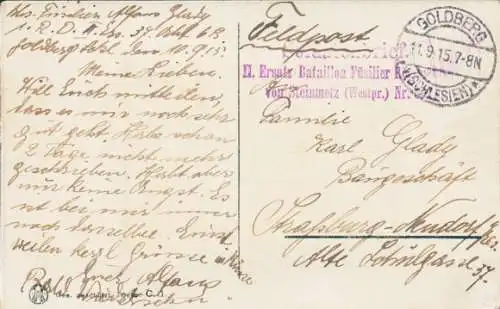 Abs. Füsilier Alfons Glady
Goldberg Schl. den 10.9.15.
Meine Lieben.
Will Euch mitteilen,
dass es mir noch sehr
gut geht. Habe schon
2 Tage nicht mehr
geschrieben. Habt aber
nur keine Angst. Es
ist bei mir immer
noch dasselbe. Einst-
weilen herzl. Grüsse
Euch Alfons
Feldpost
Soldatenbrief.
II. Ersatz Bataillon Füsilier
von Steinmetz (Westpr.) Nr.
GOLDBERG
11.9.15.7-8N
(SCHLESIEN)
Familie
Karl Glady
Baugeschäft
Straßburg-Neudorf
Alte Schulgasse 37.